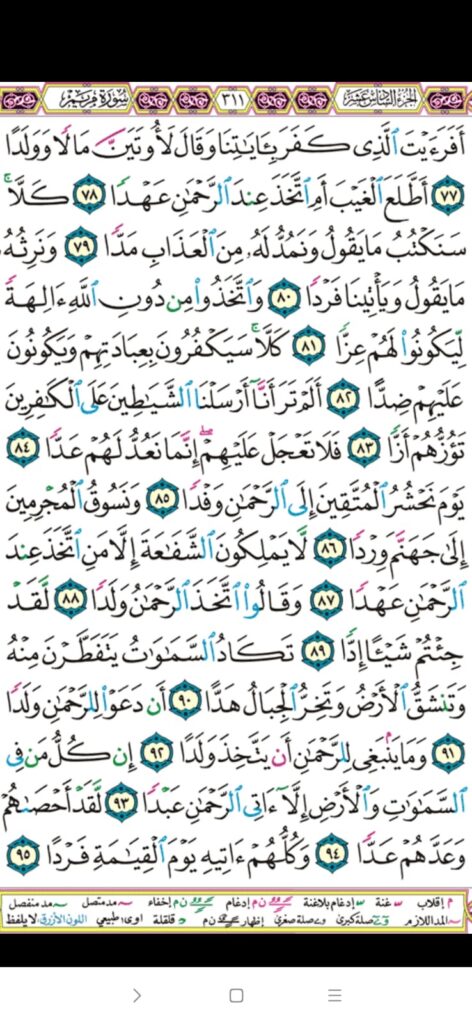 الجزء السادس عشر ٣١١ سورة مريم
أَفَرَءَيْتَ ٱلَّذِى كَفَرَ بِـَٔايَـٰتِنَا وَقَالَ لَأُوتَيَنَّ مَالًا وَوَلَدًا
٧٧ أَطَّلَعَ ٱلْغَيْبَ أَمِ ٱتَّخَذَ عِندَ ٱلرَّحْمَـٰنِ عَهْدًا ٧٨ كَلَّا ۚ
سَنَكْتُبُ مَا يَقُولُ وَنَمُدُّ لَهُۥ مِنَ ٱلْعَذَابِ مَدًّا ٧٩ وَنَرِثُهُۥ
مَا يَقُولُ وَيَأْتِينَا فَرْدًا ٨٠ وَٱتَّخَذُوا۟ مِن دُونِ ٱللَّهِ ءَالِهَةً
لِّيَكُونُوا۟ لَهُمْ عِزًّا ٨١ كَلَّا ۚ سَيَكْفُرُونَ بِعِبَادَتِهِمْ وَيَكُونُونَ
عَلَيْهِمْ ضِدًّا ٨٢ أَلَمْ تَرَ أَنَّآ أَرْسَلْنَا ٱلشَّيَـٰطِينَ عَلَى ٱلْكَـٰفِرِينَ
تَؤُزُّهُمْ أَزًّا ٨٣ فَلَا تَعْجَلْ عَلَيْهِمْ ۖ إِنَّمَا نَعُدُّ لَهُمْ عَدًّا ٨٤
يَوْمَ نَحْشُرُ ٱلْمُتَّقِينَ إِلَى ٱلرَّحْمَـٰنِ وَفْدًا ٨٥ وَنَسُوقُ ٱلْمُجْرِمِينَ
إِلَىٰ جَهَنَّمَ وِرْدًا ٨٦ لَّا يَمْلِكُونَ ٱلشَّفَـٰعَةَ إِلَّا مَنِ ٱتَّخَذَ عِندَ
ٱلرَّحْمَـٰنِ عَهْدًا ٨٧ وَقَالُوا۟ ٱتَّخَذَ ٱلرَّحْمَـٰنُ وَلَدًا ٨٨ لَّقَدْ
جِئْتُمْ شَيْـًٔا إِدًّا ٨٩ تَكَادُ ٱلسَّمَـٰوَٰتُ يَتَفَطَّرْنَ مِنْهُ
وَتَنشَقُّ ٱلْأَرْضُ وَتَخِرُّ ٱلْجِبَالُ هَدًّا ٩٠ أَن دَعَوْا۟ لِلرَّحْمَـٰنِ وَلَدًا
٩١ وَمَا يَنۢبَغِى لِلرَّحْمَـٰنِ أَن يَتَّخِذَ وَلَدًا ٩٢ إِن كُلُّ مَن فِى
ٱلسَّمَـٰوَٰتِ وَٱلْأَرْضِ إِلَّآ ءَاتِى ٱلرَّحْمَـٰنِ عَبْدًا ٩٣ لَّقَدْ أَحْصَىٰهُمْ
وَعَدَّهُمْ عَدًّا ٩٤ وَكُلُّهُمْ ءَاتِيهِ يَوْمَ ٱلْقِيَـٰمَةِ فَرْدًا ٩٥
م إقلاب غنة إدغام بلاغنة ن م إدغام ن م إخفاء مد متصل مد منفصل
المد اللازم صلة كبرى صلة صغرى إظهار ن م قلقلة اوى طبيعي اللون الأزرق لا يلفظ